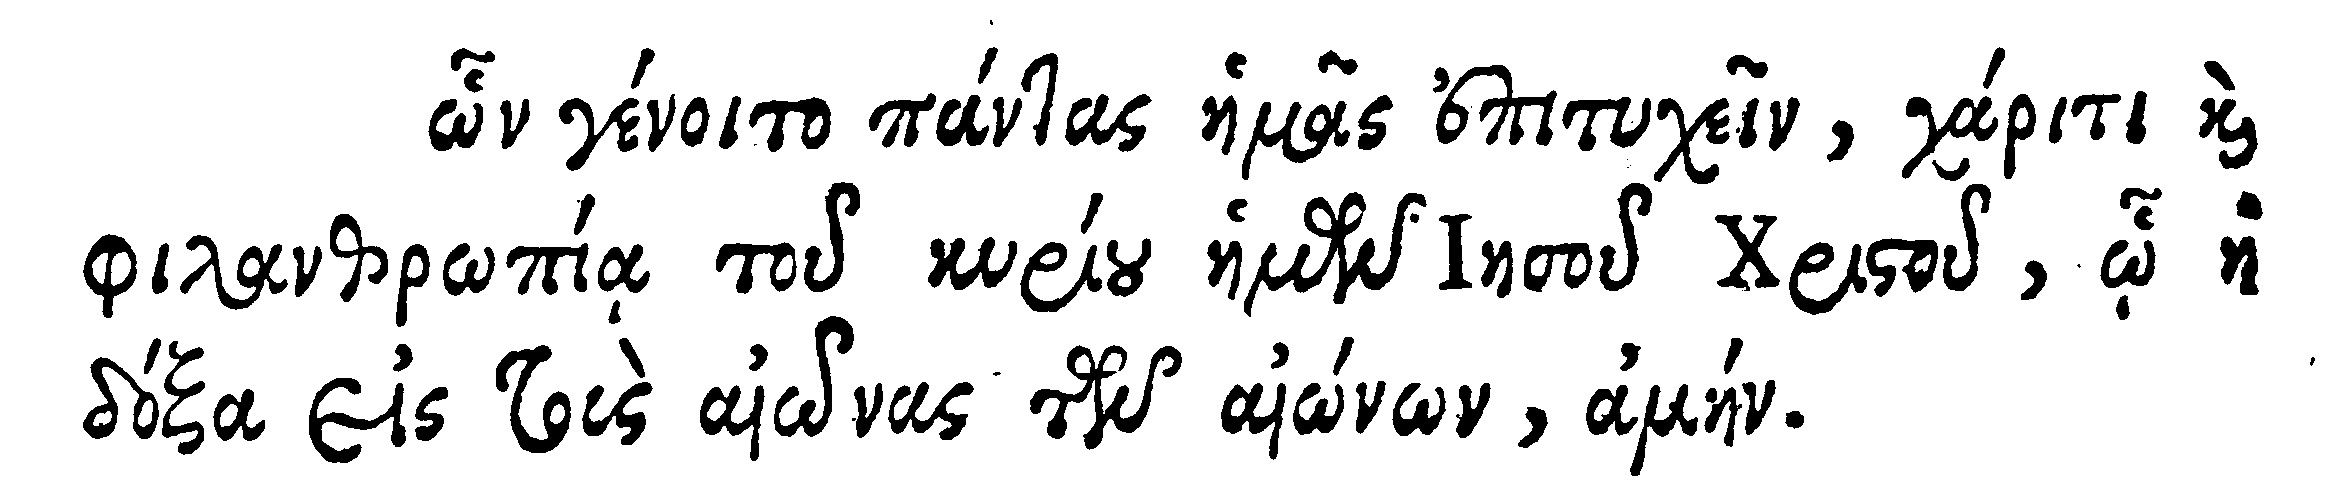 ὧν γένοιτο πάντας ἡμᾶς ἐπιτυχεῖν, χάριτι ϗ̀
φιλανθρωπίᾳ τοῦ κυρίου ἡμῶν Ἰησοῦ Χριστοῦ, ᾧ ἡ
δόξα εἰς τοὺς αἰῶνας τῶν αἰώνων, ἀμήν.